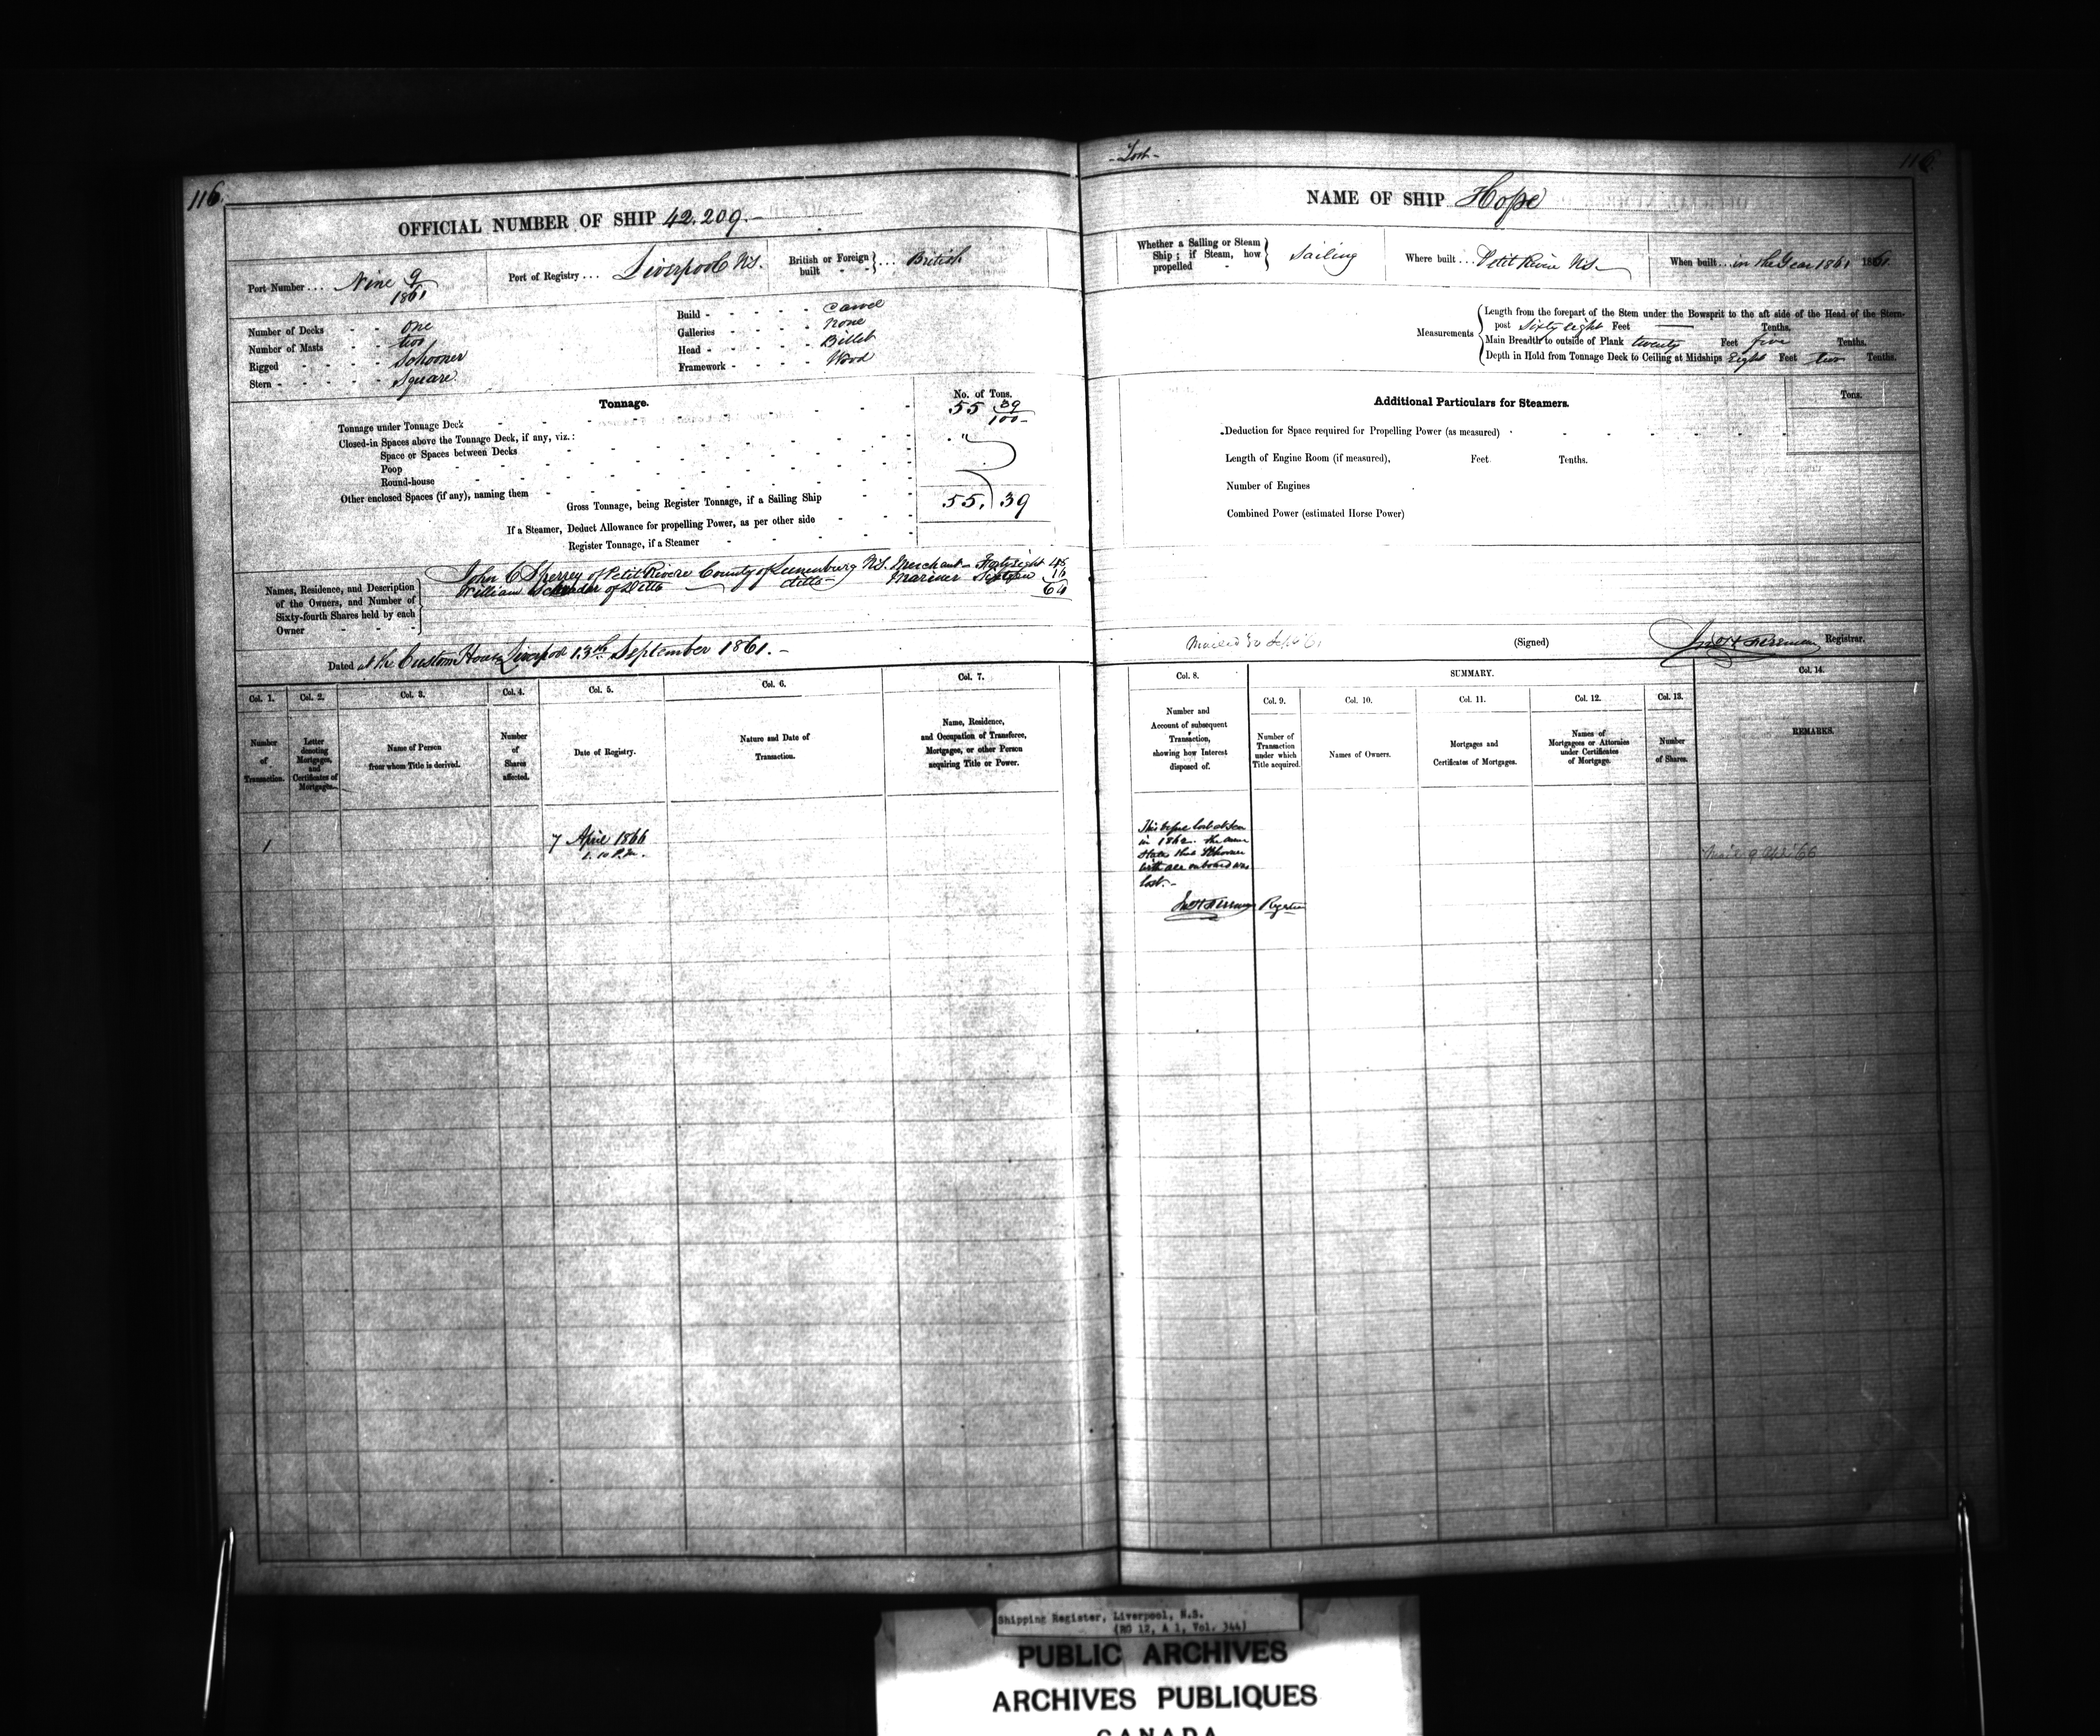 116.
OFFICIAL NUMBER OF SHIP 42.209.-
Port Number ... Nine 9/1861
Port of Registry ... Liverpool N.S.
British or Foreign built } ... British
Number of Decks - - One
Number of Masts - - two
Rigged - - - - Schooner
Stern - - - - - Square
Build - - - - - Carvel
Galleries - - - - None
Head - - - - - Billet
Framework - - - - Wood
Tonnage.
No. of Tons.
Tonnage under Tonnage Deck 55 39/100
Closed-in Spaces above the Tonnage Deck, if any, viz.:
Space or Spaces between Decks
Poop
Round-house
Other enclosed Spaces (if any), naming them
Gross Tonnage, being Register Tonnage, if a Sailing Ship 55. 39
If a Steamer, Deduct Allowance for propelling Power, as per other side
Register Tonnage, if a Steamer
Names, Residence, and Description of the Owners, and Number of Sixty-fourth Shares held by each Owner
John C Sperrey of Petit Riviere County of Lunenburg N.S. Merchant - Forty eight 48
William of Ditto ditto - Mariner Sixteen 16
64
Dated at the Custom House Liverpool 13th September 1861. -
Col. 1. Col. 2. Col. 3. Col. 4. Col. 5. Col. 6. Col. 7.
Number of Transaction.
Letter denoting Mortgages, and Certificates of Mortgages.
Name of Person from whom Title is derived.
Number of Shares affected.
Date of Registry.
Nature and Date of Transaction.
Name, Residence, and Occupation of Transferee, Mortgagee, or other Person acquiring Title or Power.
1 7 April 1866
1.10 P.M.
- Lost -
116
NAME OF SHIP Hope
Whether a Sailing or Steam Ship; if Steam, how propelled } Sailing
Where built ... Petit Riviere N.S.
When built ... in the Year 1861 1861.
Measurements
Length from the forepart of the Stem under the Bowsprit to the aft side of the Head of the Stern-
post Sixty eight Feet —— Tenths.
Main Breadth to outside of Plank twenty Feet five Tenths.
Depth in Hold from Tonnage Deck to Ceiling at Midships Eight Feet two Tenths.
Additional Particulars for Steamers.
Tons.
Deduction for Space required for Propelling Power (as measured)
Length of Engine Room (if measured), Feet. Tenths.
Number of Engines
Combined Power (estimated Horse Power)
Mailed 30 Sept 61
(Signed) Registrar.
Col. 8. SUMMARY. Col. 14.
Col. 9. Col. 10. Col. 11. Col. 12. Col. 13.
Number and Account of subsequent Transaction, showing how Interest disposed of.
Number of Transaction under which Title acquired.
Names of Owners.
Mortgages and Certificates of Mortgages.
Names of Mortgagees or Attornies under Certificates of Mortgage.
Number of Shares.
REMARKS.
This lost at Sea
in 1862. the
States that Schooner
with all onboard was
lost. -
Registrar
66
Shipping Register, Liverpool, N.S.
(RG 12, A 1, Vol. 344)
PUBLIC ARCHIVES
ARCHIVES PUBLIQUES
CANADA